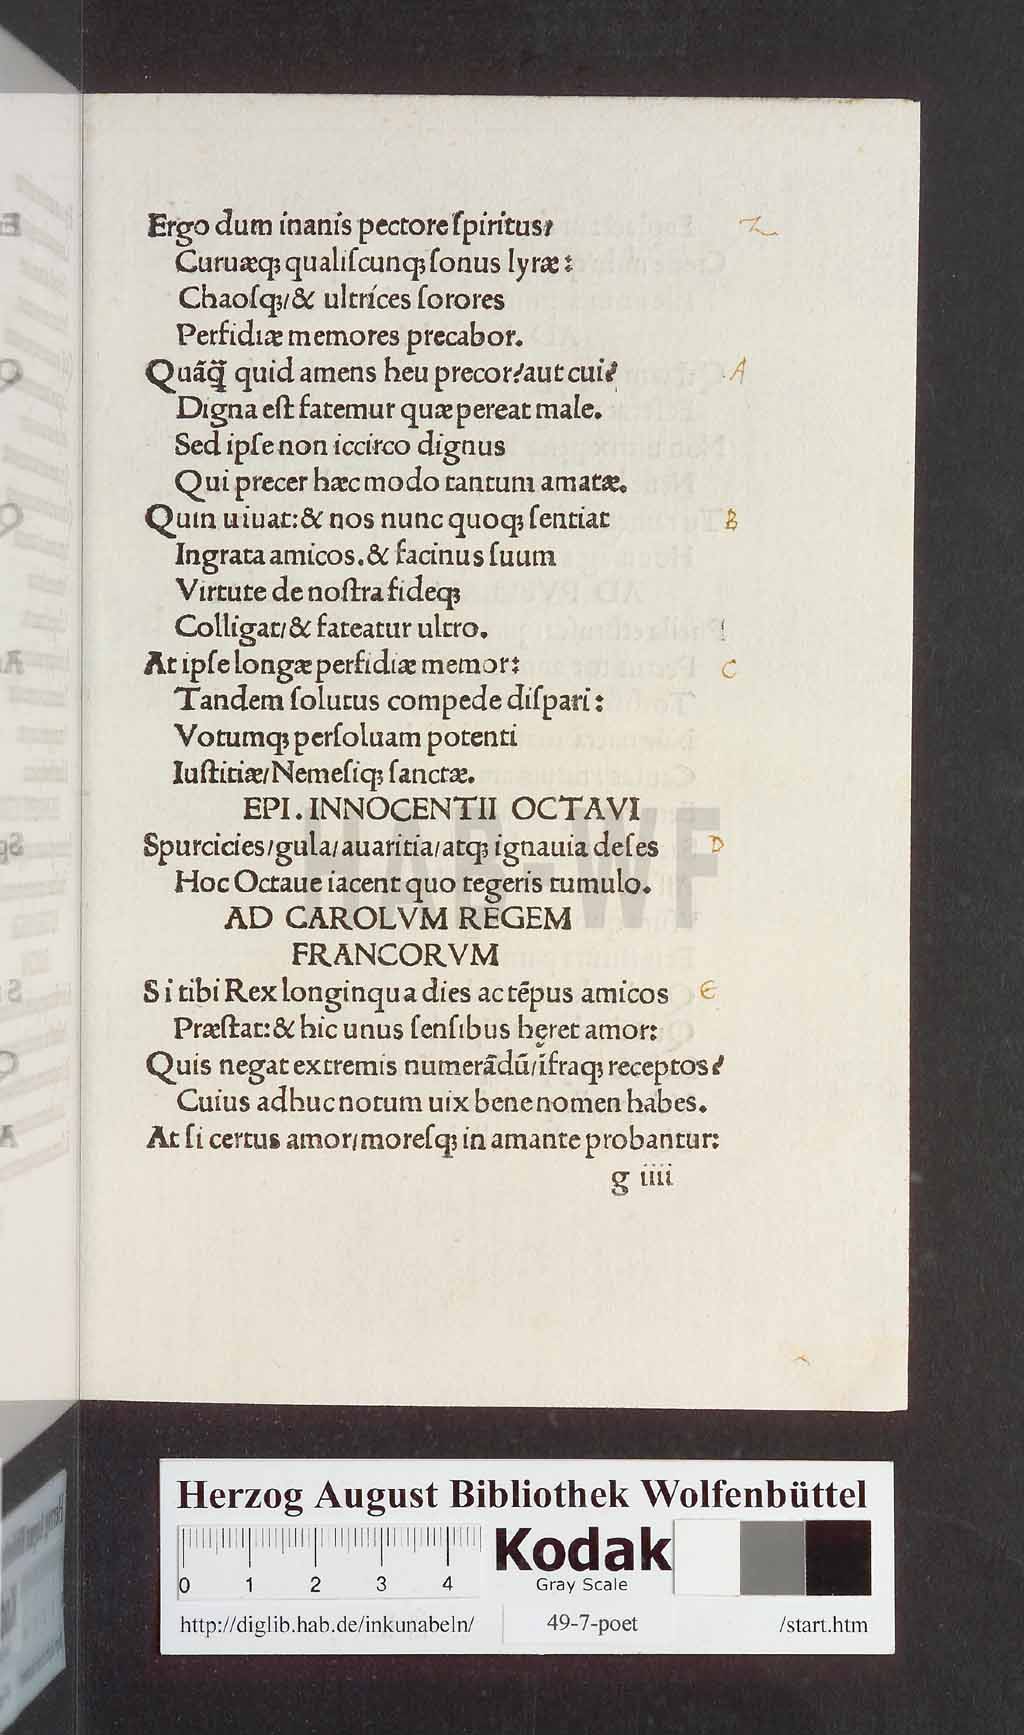 Ergo dum inanis pectore ſpiritus,
Curuæqꝫ qualiſcunqꝫ ſonus lyræ:
Chaoſqꝫ/& ultríces ſorores
Perfidiæ memores precabor.
Quãq̃ quid amens heu precor?aut cui?
Digna eſt fatemur quæ pereat male.
Sed ipſe non iccirco dignus
Qui precer hæc modo tantum amatæ.
Quin uiuat:& nos nunc quoqꝫ ſentiat
Ingrata amicos.& facinus ſuum
Virtute de noſtra fideqꝫ
Colligat/& fateatur ultro.
At ipſe longæ perfidiæ memor:
Tandem ſolutus compede diſpari:
Votumqꝫ perſoluam potenti
Iuſtitiæ/Nemeſiqꝫ ſanctæ.
EPI. INNOCENTII OCTAVI
Spurcicies/gula/auaritia/atqꝫ ignauia deſes
Hoc Octaue iacent quo tegeris tumulo.
AD CAROLVM REGEM
FRANCORVM
Si tibi Rex longinqua dies ac tẽpus amicos
Præſtat:& hic unus ſenſibus hęret amor:
Quis negat extremis numerãdũ/ĩfraqꝫ receptos?
Cuius adhuc notum uix bene nomen habes.
At ſi certus amor/moreſqꝫ in amante probantur:
g iiii
A
B
C
D
E
HAB-WF
Herzog August Bibliothek Wolfenbüttel
0 1 2 3 4
Kodak
Gray Scale
http://diglib.hab.de/inkunabeln/ 49-7-poet /start.htm